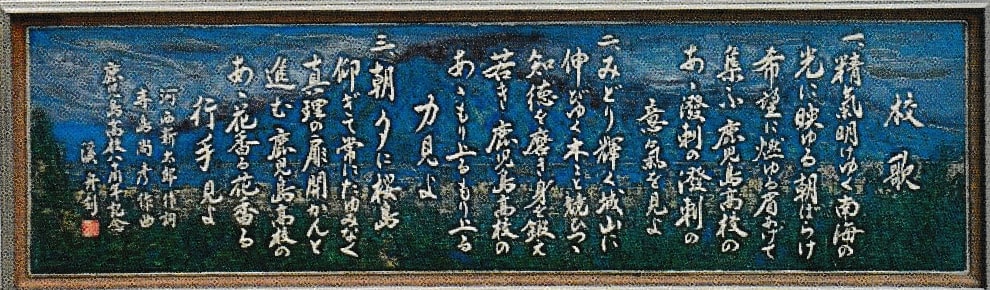 校歌
一、精氣明けゆく南海の
光に映ゆる朝ぼらけ
希望に燃ゆる肩あげて
集ふ鹿児島高校の
あゝ潑刺の潑刺の
意氣を見よ
二、みどり輝く城山に
伸びゆく木々と競ひつゝ
知徳を磨き身を鍛え
若き鹿児島高校の
あゝもり上るもり上る
力見よ
三、朝夕に桜島
仰ぎて常にたゆみなく
真理の扉開かんと
進む鹿児島高校の
あゝ花香る花香る
行手見よ
河西新太郎作詞
寺島尚彦作曲
鹿児島高校八十周年記念